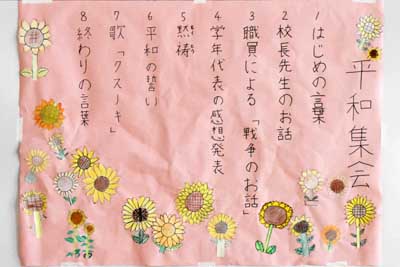 平和集会
1 はじめの言葉
2 校長先生のお話
3 職員による「戦争のお話」
4 学年代表の感想発表
5 黙祷
6 平和の誓い
7 歌「クスノキ」
8 終わりの言葉